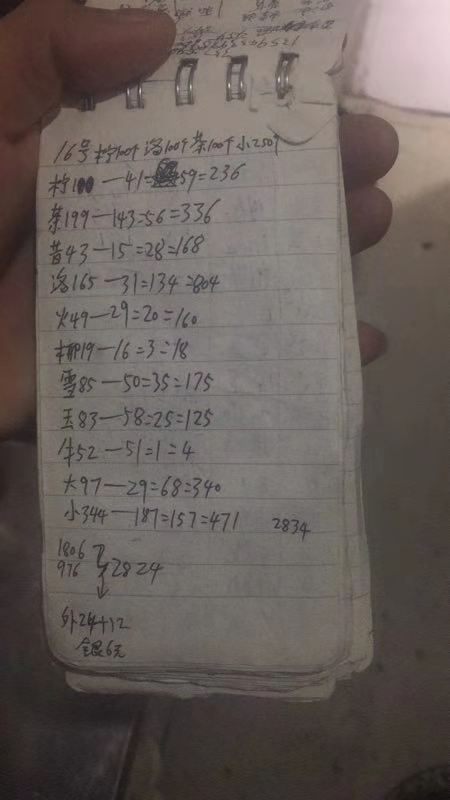 16号 柠100个 洛100个 茶100个 小250个
柠100—41=59=236
茶199—143=56=336
昔43—15=28=168
洛165—31=134=804
火49—29=20=160
柳19—16=3=18
雪85—50=35=175
玉83—58=25=125
牛52—51=1=4
大97—29=68=340
小344—187=157=471 2834
1806
976 2824
外24+12
银6元